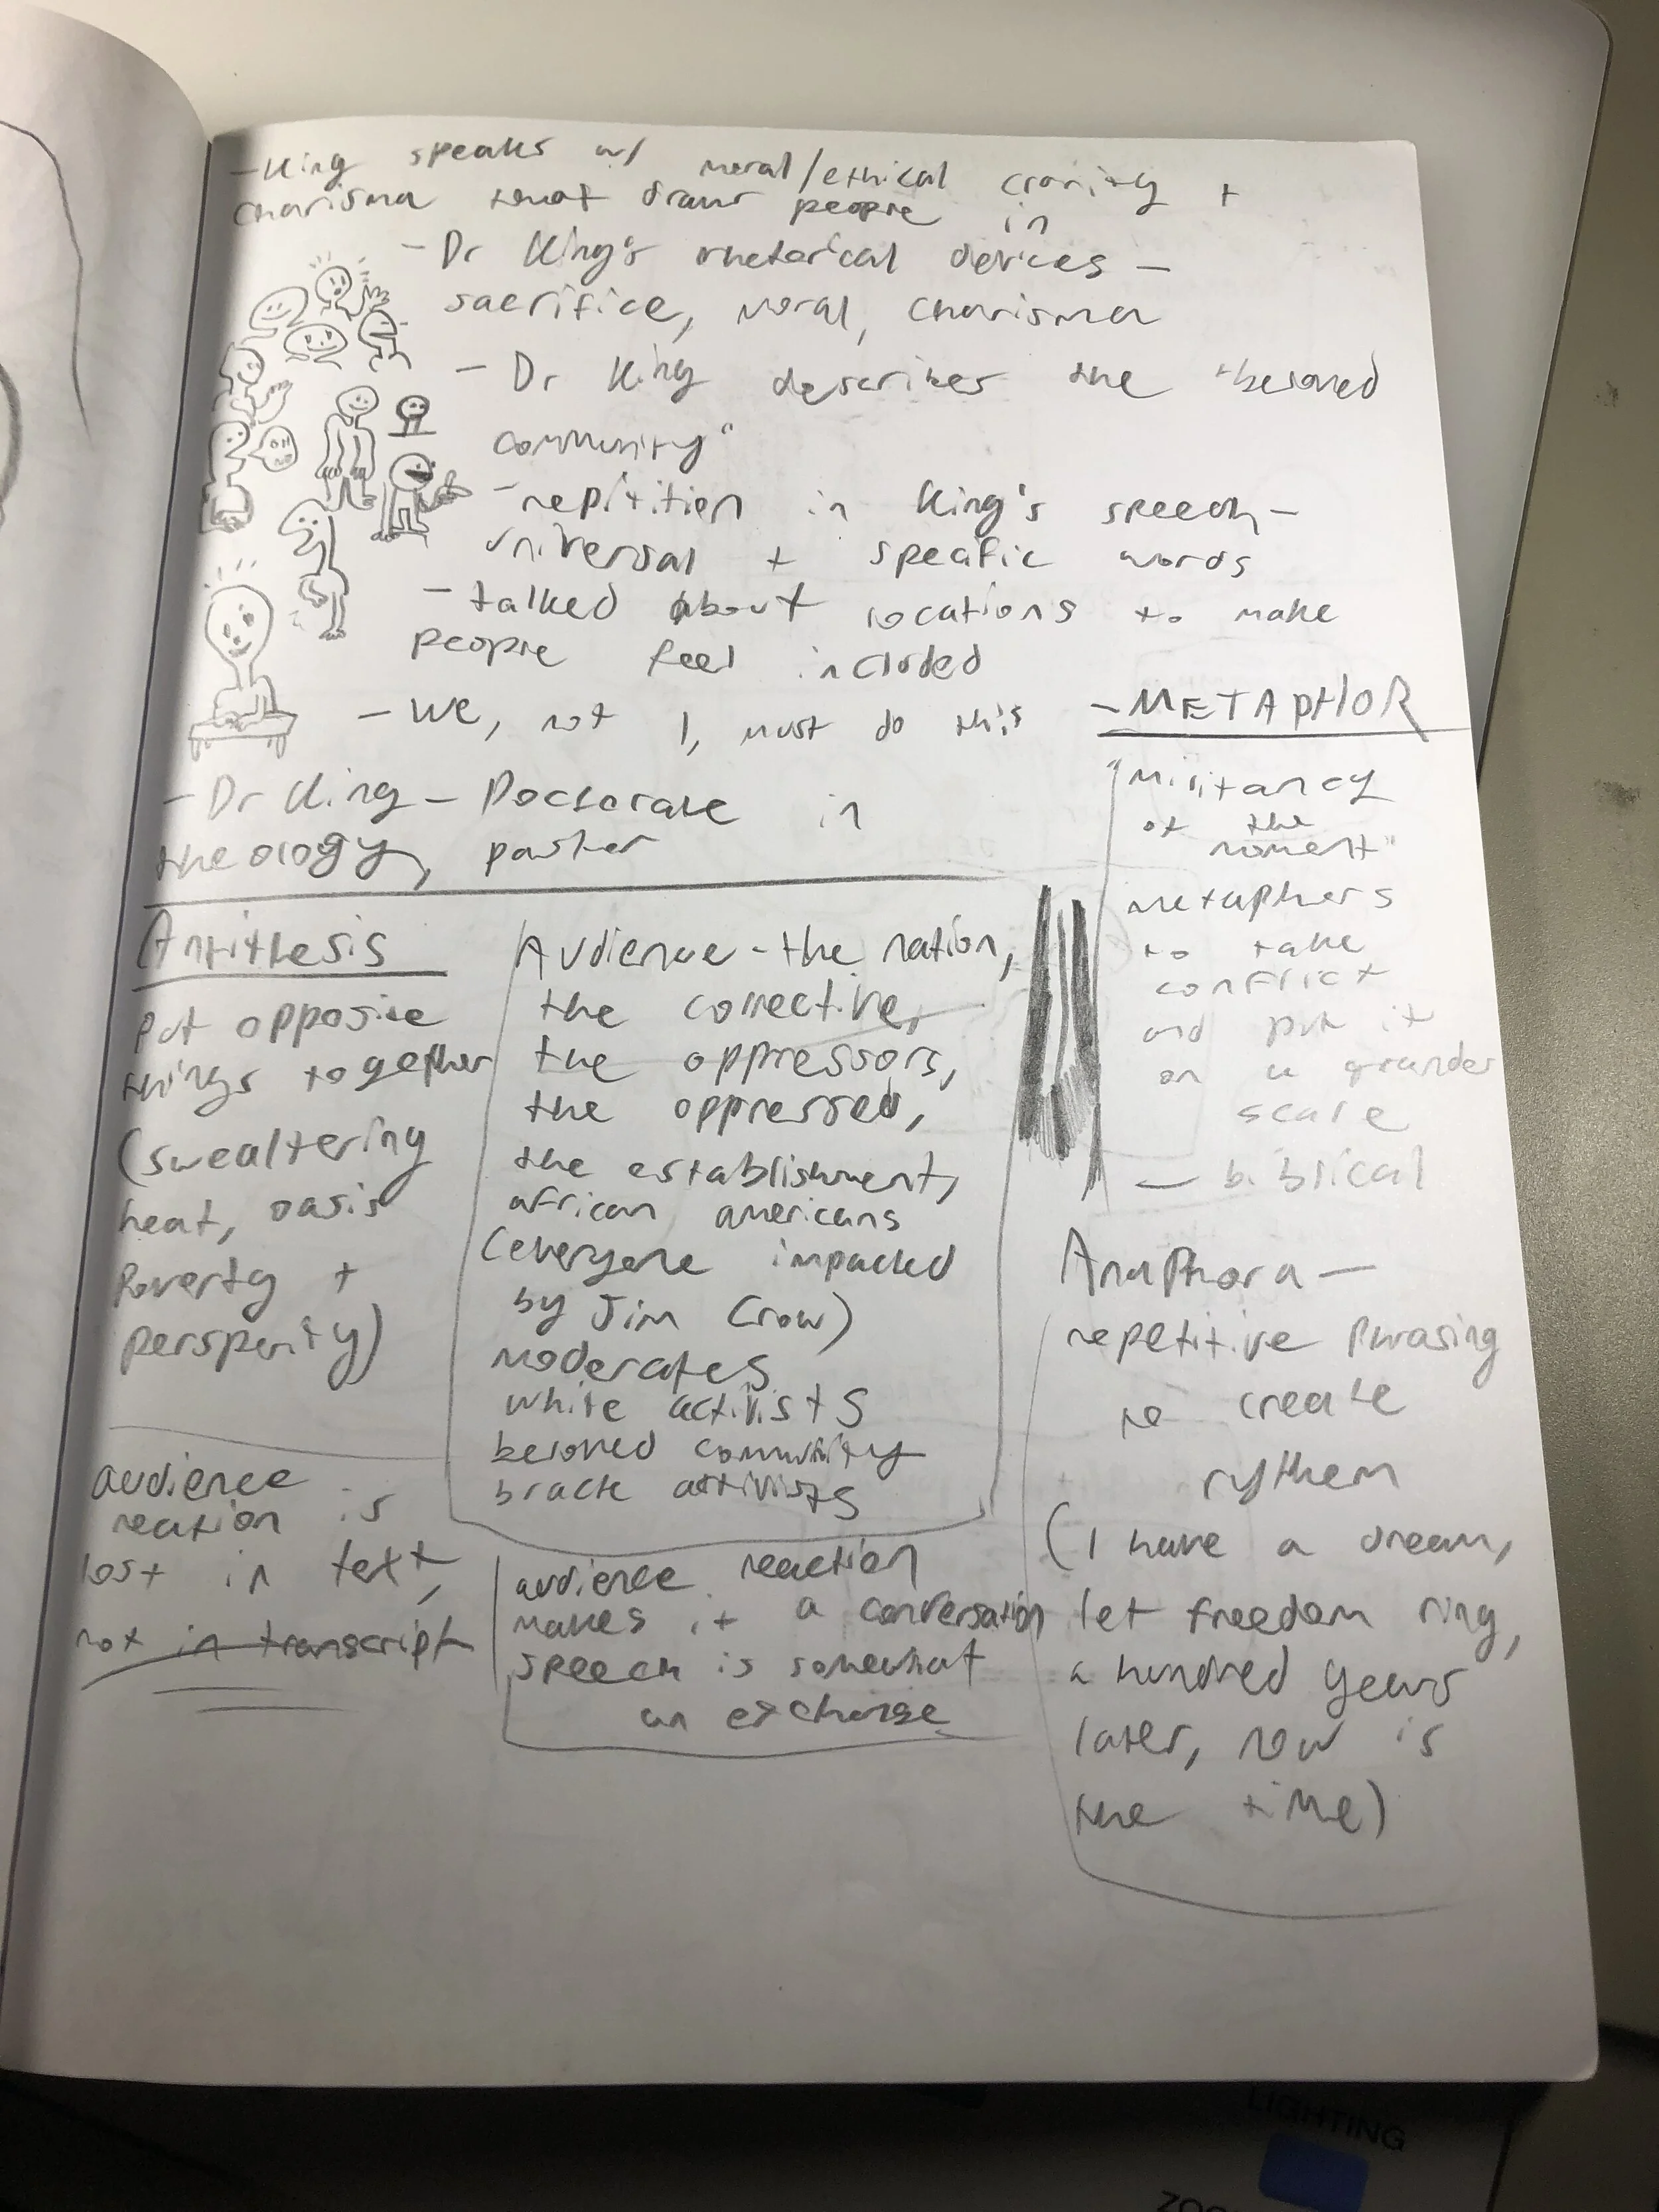 - King speaks w/ moral/ethical clarity +
charisma that draws people in
- Dr King's rhetorical devices -
sacrifice, moral, charisma
- Dr King describes the "beloved
community"
- repitition in King's speech -
universal + specific words
- talked about locations to make
people feel included
- we, not I, must do this
- Dr King - Doctorate in
theology, pastor
- METAPHOR
"Militancy
of the
moment"
metaphors
to take
conflict
and put it
on a grander
scale
- biblical
Antithesis
Put opposite
things together
(swealtering
heat, oasis
Poverty +
persperity)
Audience - the nation,
the collective,
the oppressors,
the oppressed,
the establishment,
african americans
(everyone impacted
by Jim Crow)
moderates
white activists
beloved community
black activists
Anaphora -
repetitive phrasing
to create
rythem
(I have a dream,
let freedom ring,
a hundred years
later, now is
the time)
audience
reation is
lost in text,
not in transcript
audience reaction
makes it a conversation
speech is somewhat
an exchange
OH
NO
LIGHTING
ZOO